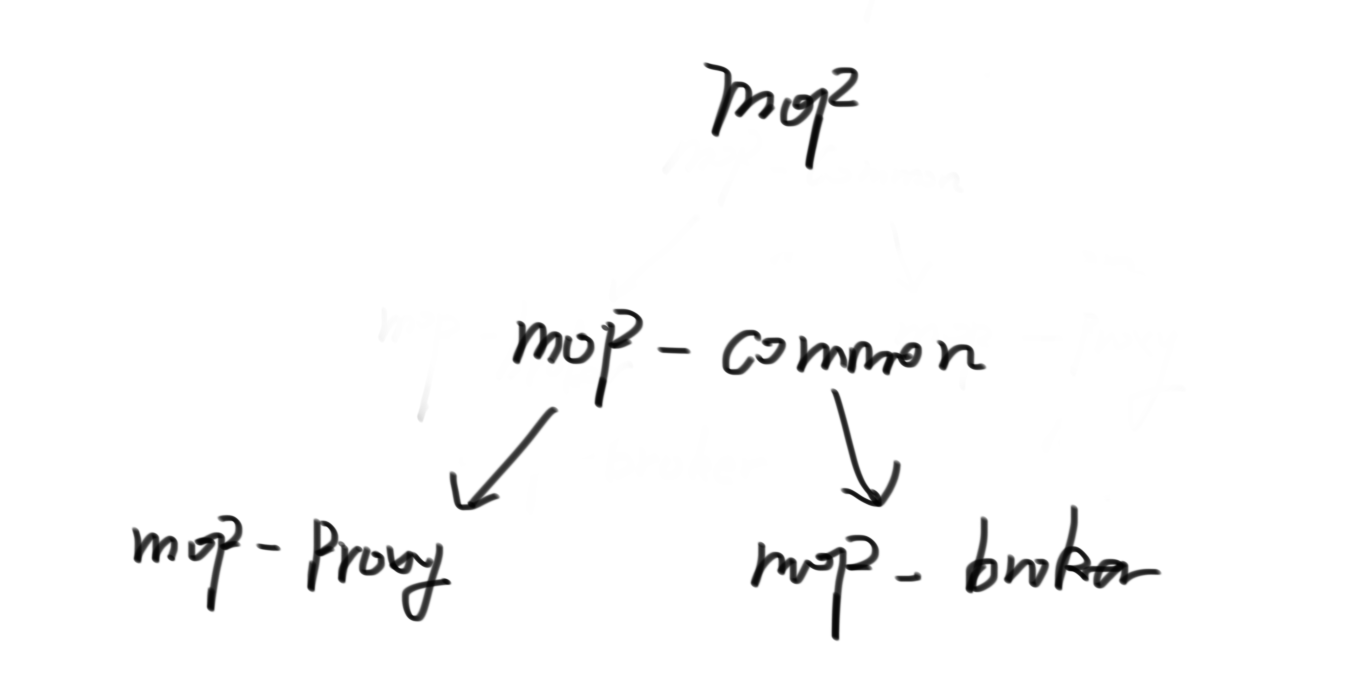 mop
mop - common
mop - Proxy
mop - broker